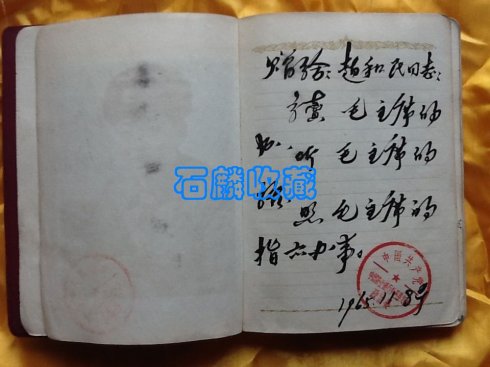 赠给:赵和民同志:
读毛主席的
书.听毛主席的
话.照毛主席的
指示办事。
1965.11.8
中国共产党
石麟收藏